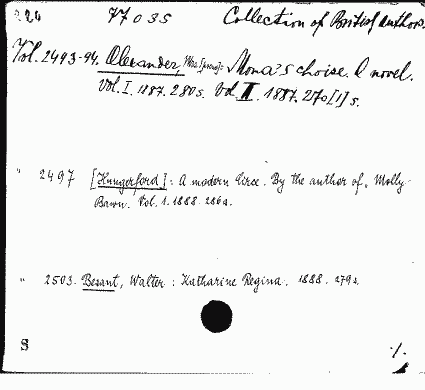 77035 Collection of British authors.
Vol. 2493-94. Alexander, Mrs. [pseud]: Mona's choise. A novel.
Vol. I. 1887. 280s. Vol II. 1887. 270[1]s.
" 2497 [Hungerford]: A modern Circe. By the author of „Molly-
Bawn. Vol. 1. 1888. 286s.
" 2503. Besant, Walter: Katharine Regina. 1888. 279s.
S ./.